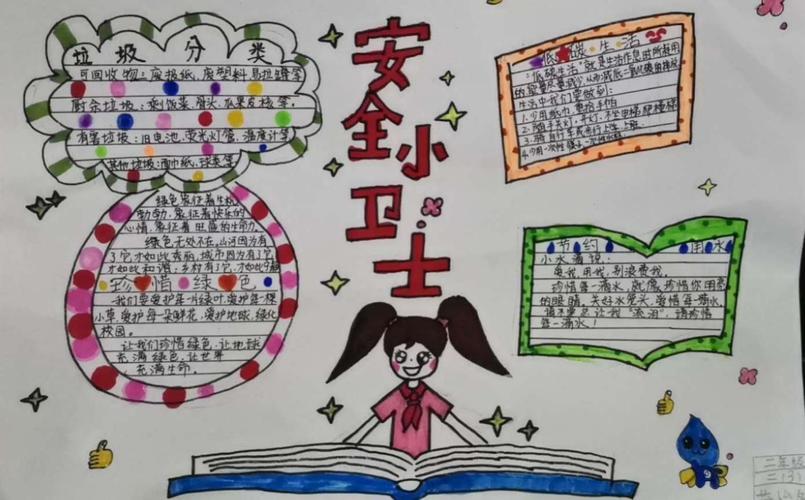 安全小卫士
垃圾分类
可回收物：废报纸，废塑料易拉罐等
厨余垃圾：剩饭菜，骨头，瓜果皮核等，
有害垃圾：旧电池，荧光灯管，温度计等
其他垃圾：面巾纸，
绿色象征着生机
勃勃，象征着快乐的
心情，象征着旺盛的生命力
绿色无处不在。山河因为有
了它才如此秀丽，城市因为有了它
才如此和谐，乡村有了它，才如此宁静
珍惜绿色
我们要爱护每一片绿叶，爱护每一棵
小草，爱护每一朵鲜花，爱护地球，绿化
校园。
让我们珍惜绿色，让地球
充满绿色，让世界
充满生命。
低碳生活
"低碳生活"就是生活作息时所耗用
的能量尽量减少，从而减低二氧化碳的排放
生活中我们要做到：
1.少用纸巾，重拾手帕
2.随手关灯，开灯，不坐电梯爬楼梯
3.骑自行车或步行上下班
4.少用一次性
节约用水
小水滴说：
爱我，用我，别浪费我。
珍惜每一滴水，就像珍惜你用亮
的眼睛，关好水龙头，爱惜每一滴水，
请不要总让我"流泪"，请珍惜
每一滴水！
二年级
二(3)